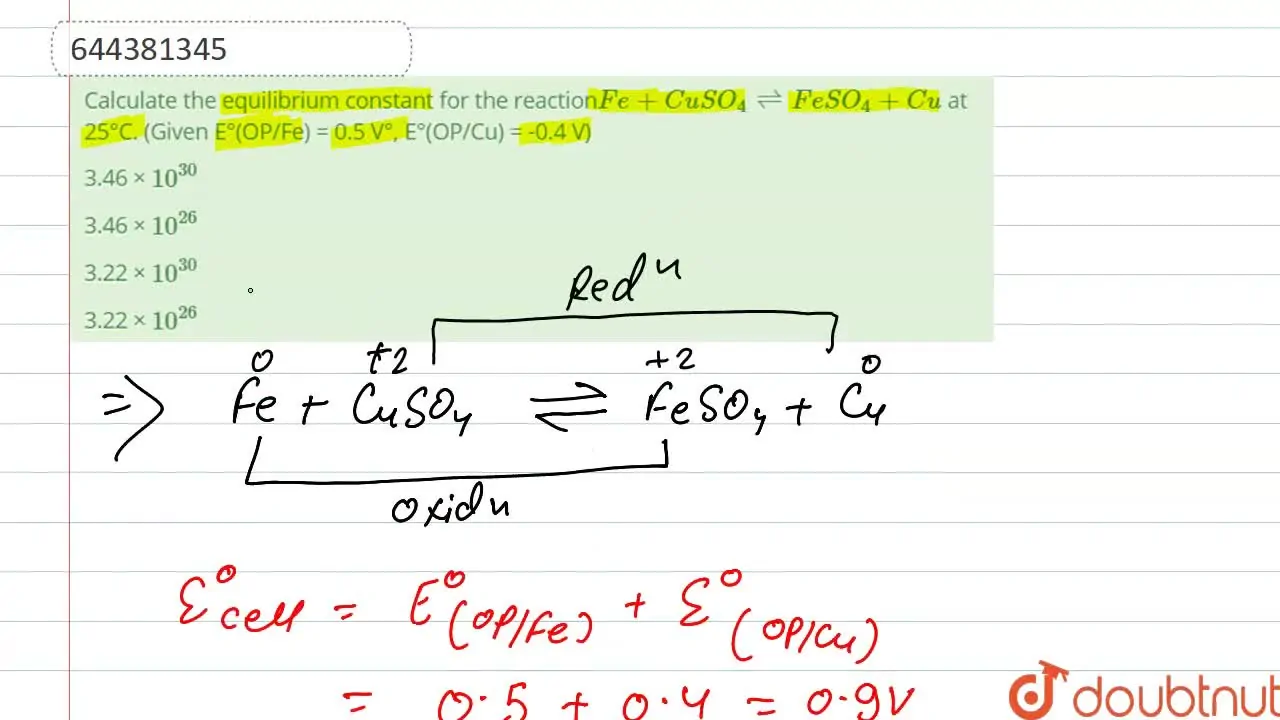 644381345
Calculate the equilibrium constant for the reaction Fe + CuSO₄ ⇌ FeSO₄ + Cu at
25°C. (Given E°(OP/Fe) = 0.5 V°, E°(OP/Cu) = -0.4 V)
3.46 × 10³⁰
3.46 × 10²⁶
3.22 × 10³⁰
3.22 × 10²⁶
Redⁿ
0 +2 +2 0
=> Fe + CuSO₄ ⇌ FeSO₄ + Cu
Oxidn
E°cell = E°(OP/Fe) + E°(OP/Cu)
= 0.5 + 0.4 = 0.9V
doubtnut